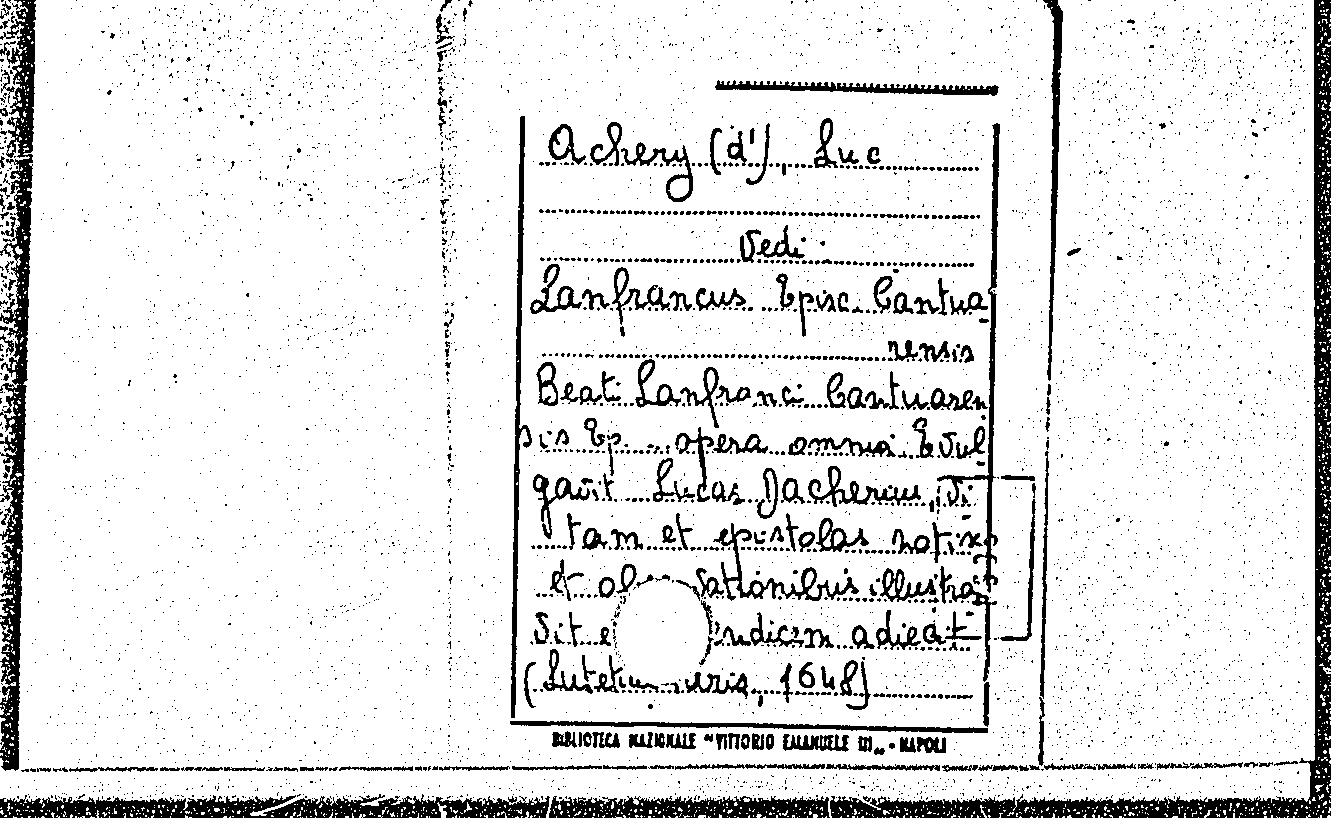 Achery (d'), Luc
Vedi:
Lanfrancus Episc. Cantua-
rensis
Beati Lanfranci Cantuaren
sis Ep. .. opera omnia. Evul-
gavit Lucas Dacherau, vi-
tam et epistolas notis
et sationibus illustra-
sit e indicem adieat
(Lutetiae 1648)
BIBLIOTECA NAZIONALE "VITTORIO EMANUELE III" - NAPOLI